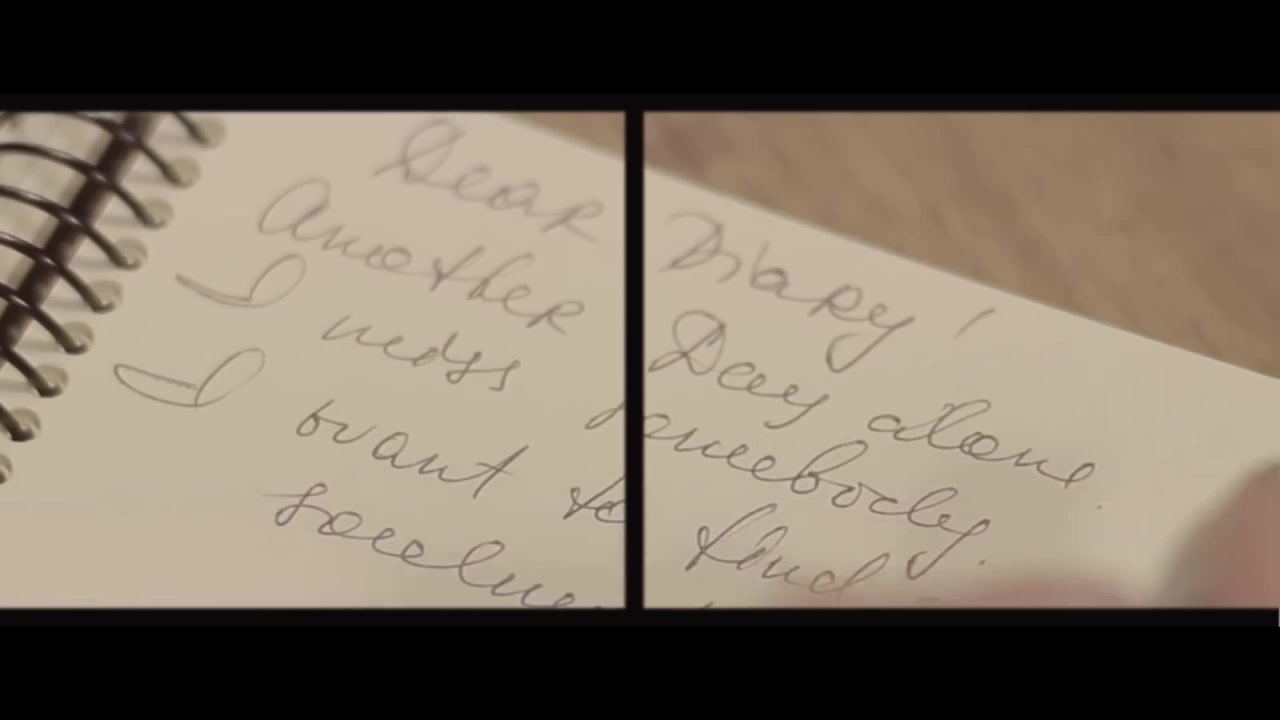 Dear Diary!
Another Day alone.
I miss somebody.
I want to find